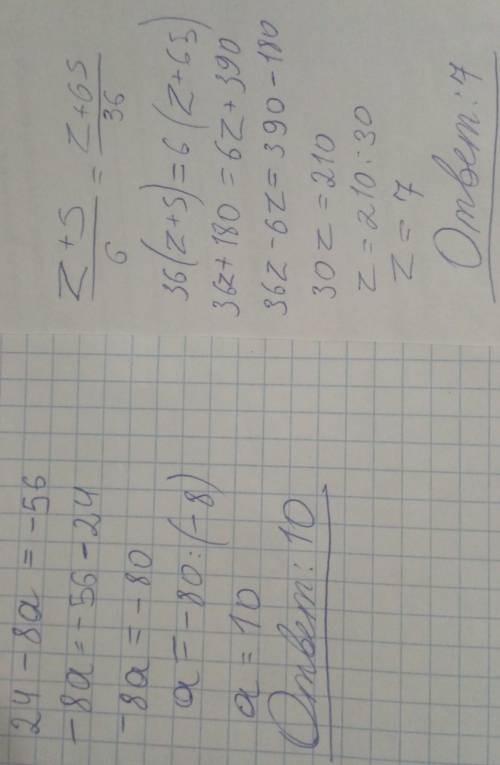 z+5/6 = z+65/36
36(z+5)=6(z+65)
36z+180=6z+390
36z-6z=390-180
30z=210
z=210:30
z=7
Ответ:7
24-8a=-56
-8a=-56-24
-8a=-80
a=-80:(-8)
a=10
Ответ:10